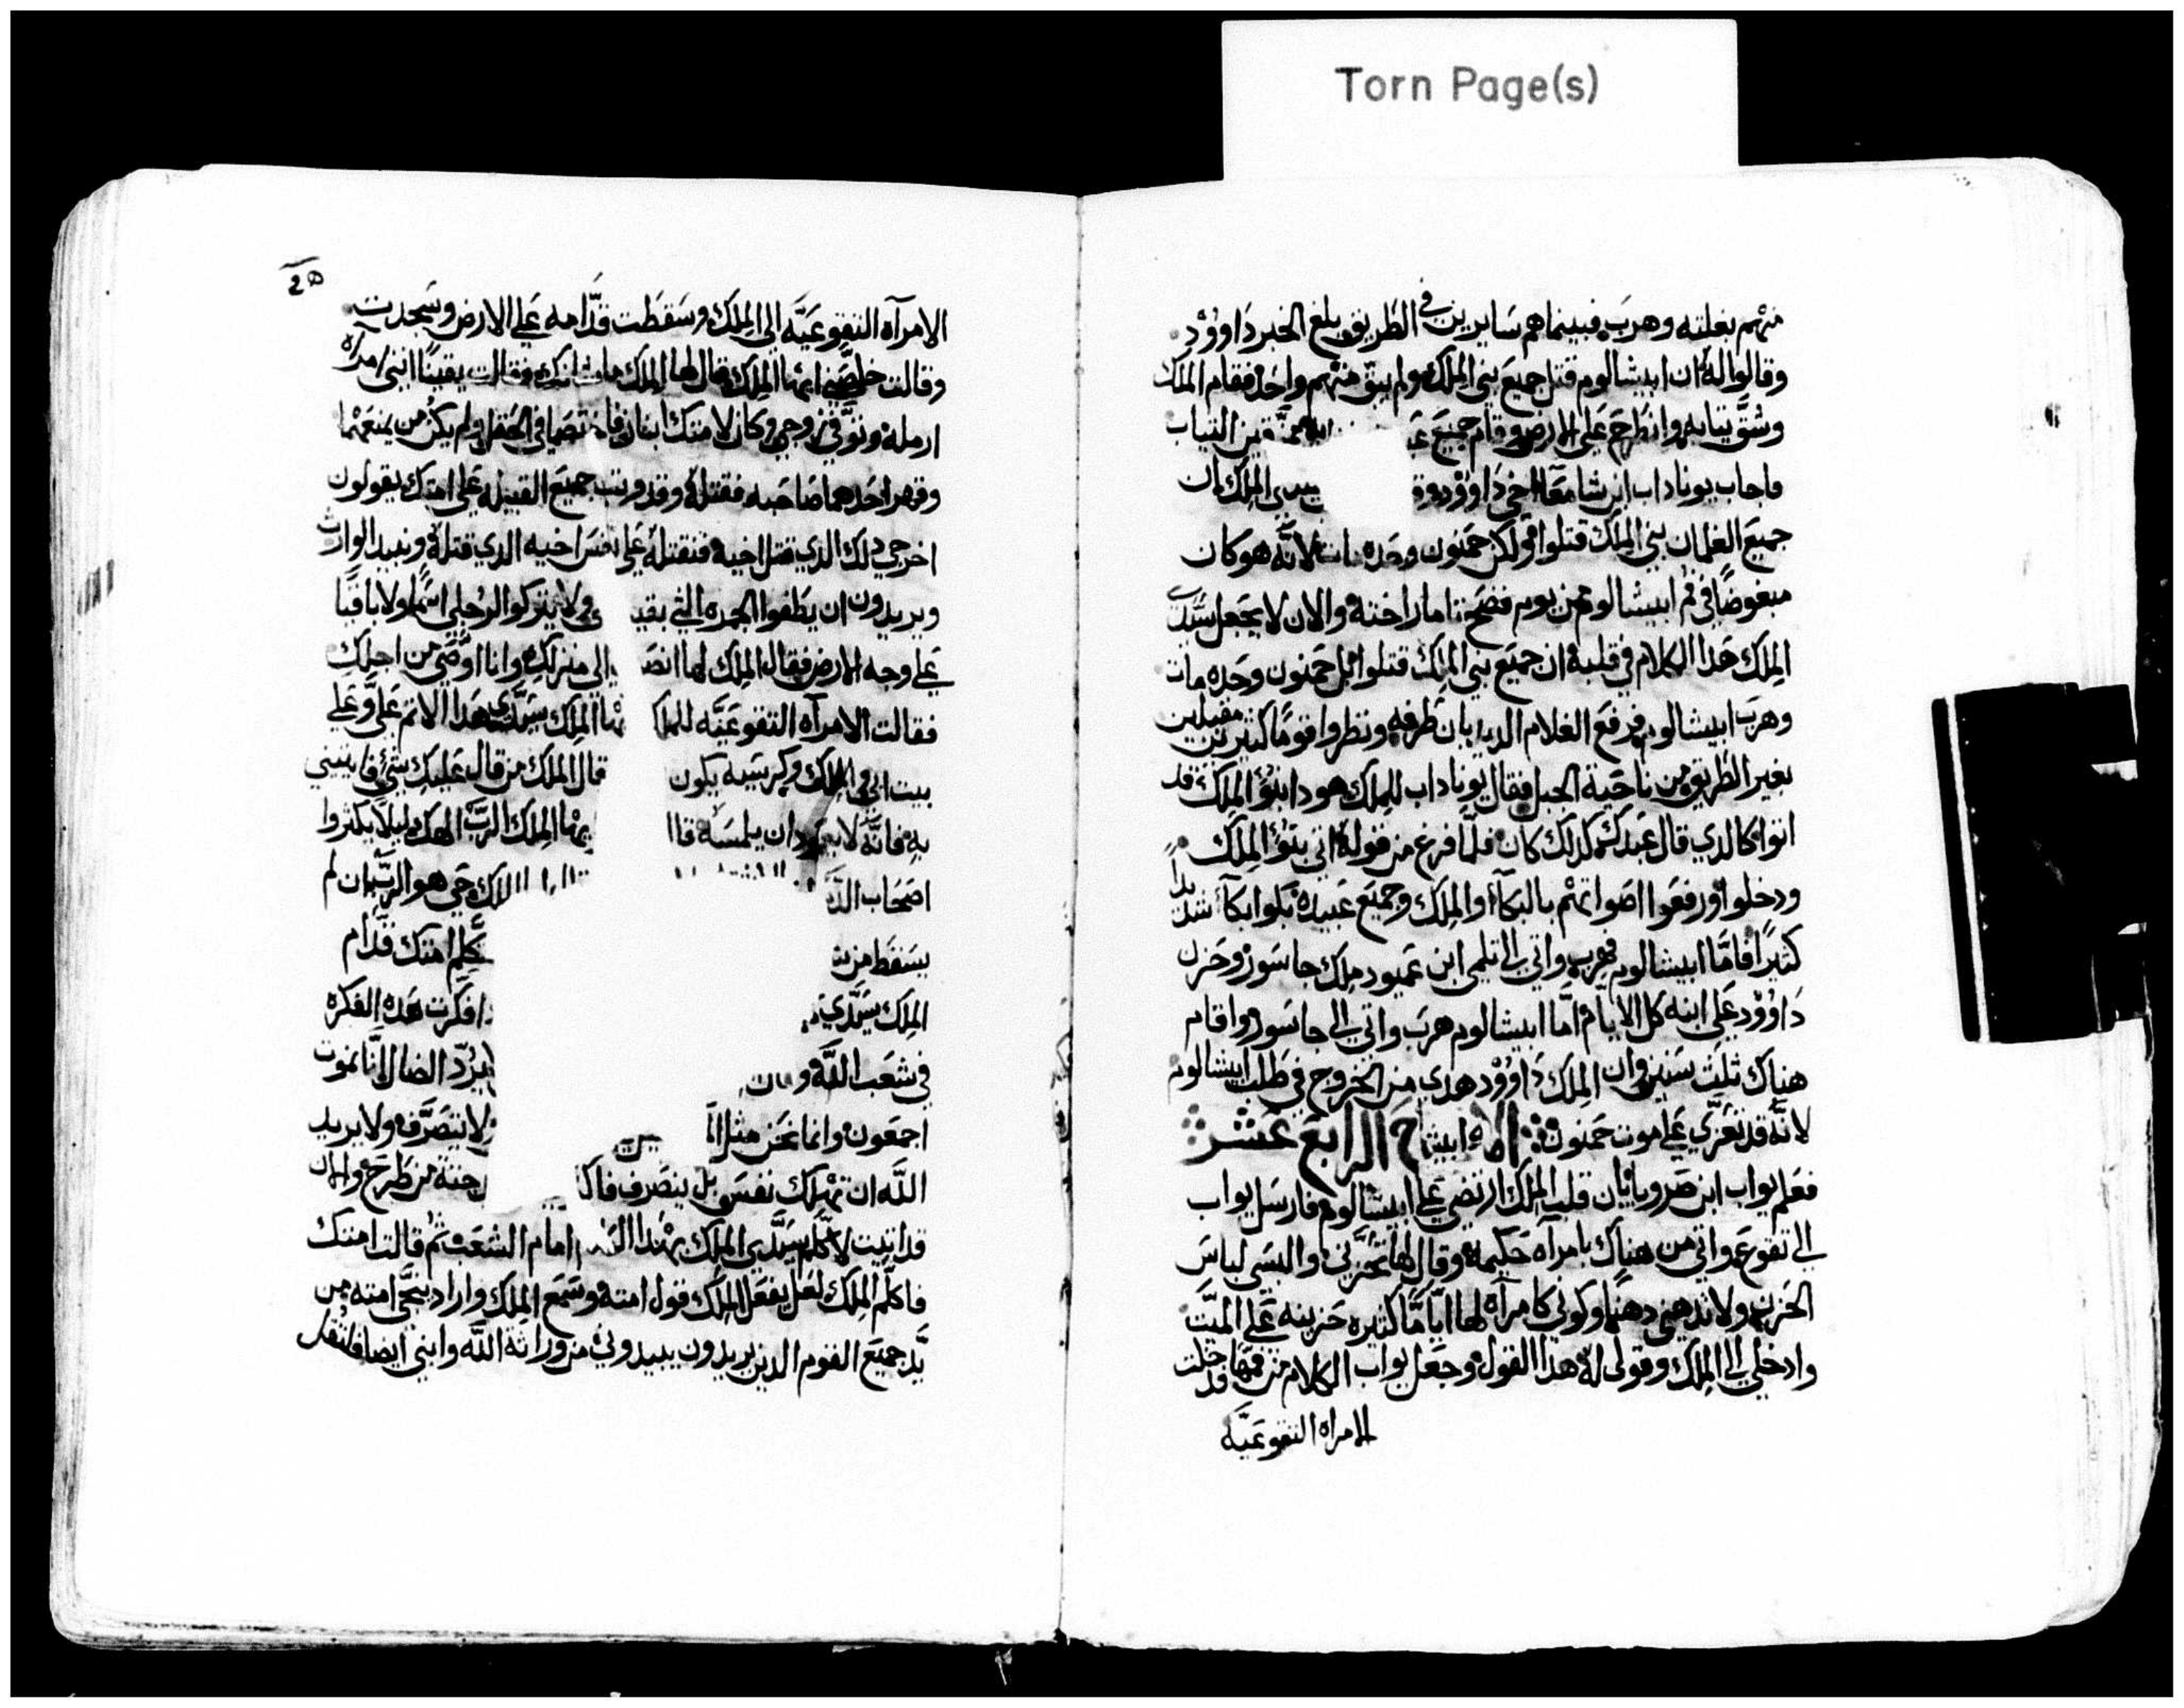 Torn Page(s)
منهم بغلته وهرب فبينما هم سايرين في الطريق بلغ الخبر داوود
وقالوا له ان ابيشالوم قتل جميع بني الملك ولم يبق منهم واحد فقام الملك
وشق ثيابه وانطرح على الارض وقام جميع الثياب
فاجاب يوناداب ابن شامعا اخي داوود سيدي الملك ان
جميع الغلمان بني الملك قتلوا ولكن حمنون وحده مات لانه هو كان
مبغوضا في فم ابيشالوم من يوم فضح تامار اخته والان لا يجعل سيدي
الملك هدا الكلام في قلبه ان جميع بني الملك قتلوا بل حمنون وحده مات
وهرب ابيشالوم فرفع الغلام الديدبان طرفه ونظر وا قوما كثيرين مقبلين
بغير الطريق من ناحية الجبل فقال يوناداب للملك هودا بنو الملك قد
اتوا كالدي قال عبدك كدلك كان فلما فرغ من قوله اتى بنو الملك
ودخلوا ورفعوا اصواتهم بالبكاء والملك وجميع عبيده بكوا بكاء شديدا
كثيرا فاما ابيشالوم فهرب واتى الى تلمي ابن عميود ملك جاسور وحزن
داوود على ابنه كل الايام اما ابيشالوم هرب واتى الى جاسور واقام
هناك ثلث سنين وان الملك داوود هدي من الخروج في طلب ابيشالوم
لانه قد تعزى على موت حمنون الرابع عشر
فعلم يواب ابن صرويا بان قلب الملك ارتضى على ابيشالوم فارسل يواب
الى تقوع واتى من هناك بامرآه حكيمه وقال لها تحزني والبسي لباس
الحزن ولا تدهني دهنا وكوني كامرآه لها اياما كثيره حزينه على الميت
وادخلي الى الملك وقولي له هدا القول وجعل يواب الكلام من فمها قد دخلت
الامراه التقوعيه
الامرآه التقوعيه الى الملك وسقطت قدامه على الارض وسجدت
وقالت خلصني ايها الملك قال لها الملك ما شانك فقالت يقينا انني امرآه
ارمله وتوفى زوجي وكان لامتك ابنان فاختصما في الحقل ولم يكن من يمنعهما
وقهر احدهما صاحبه فقتله وقد وثبت جميع القبيله على امتك يقولون
اخرجي دلك الدي قتل اخيه فنقتله على نفس اخيه الدي قتله ونبيد الوارث
ويريدون ان يطفوا الجمره التي بقيت ولا يتركوا لرجلي اسما ولا باقيا
على وجه الارض فقال الملك لها الى منزلك وانا اوصى من اجلك
فقالت الامرآه التقوعيه للملك الملك سيدي هدا الاثم علي وعلى
بيت ابي والملك وكرسيه يكون قال الملك من قال عليك شي فاتيني
به فانه لا يعود ان يلمسه الملك الرب الهك ليلا يكثروا
اصحاب الملك حي هو الرب ان لم
يسقط من امتك قدام
الملك سيدي افكرت هده الفكره
في شعب الله يرد الضال اننا نموت
اجمعون وانما نحن مثل لا تنصرف ولا يريد
الله ان تهلك نفس بل ينصرف من طرح والان
قد اتيت لاكلم سيدي الملك بهدا امام الشعب ثم قالت امتك
فاكلم الملك لعل يفعل الملك قول امته وسمع الملك واراد ينجي امته من
يد جميع القوم الدين يريدون يبيدوني من وراثة الله وابني ايضا فلتقل